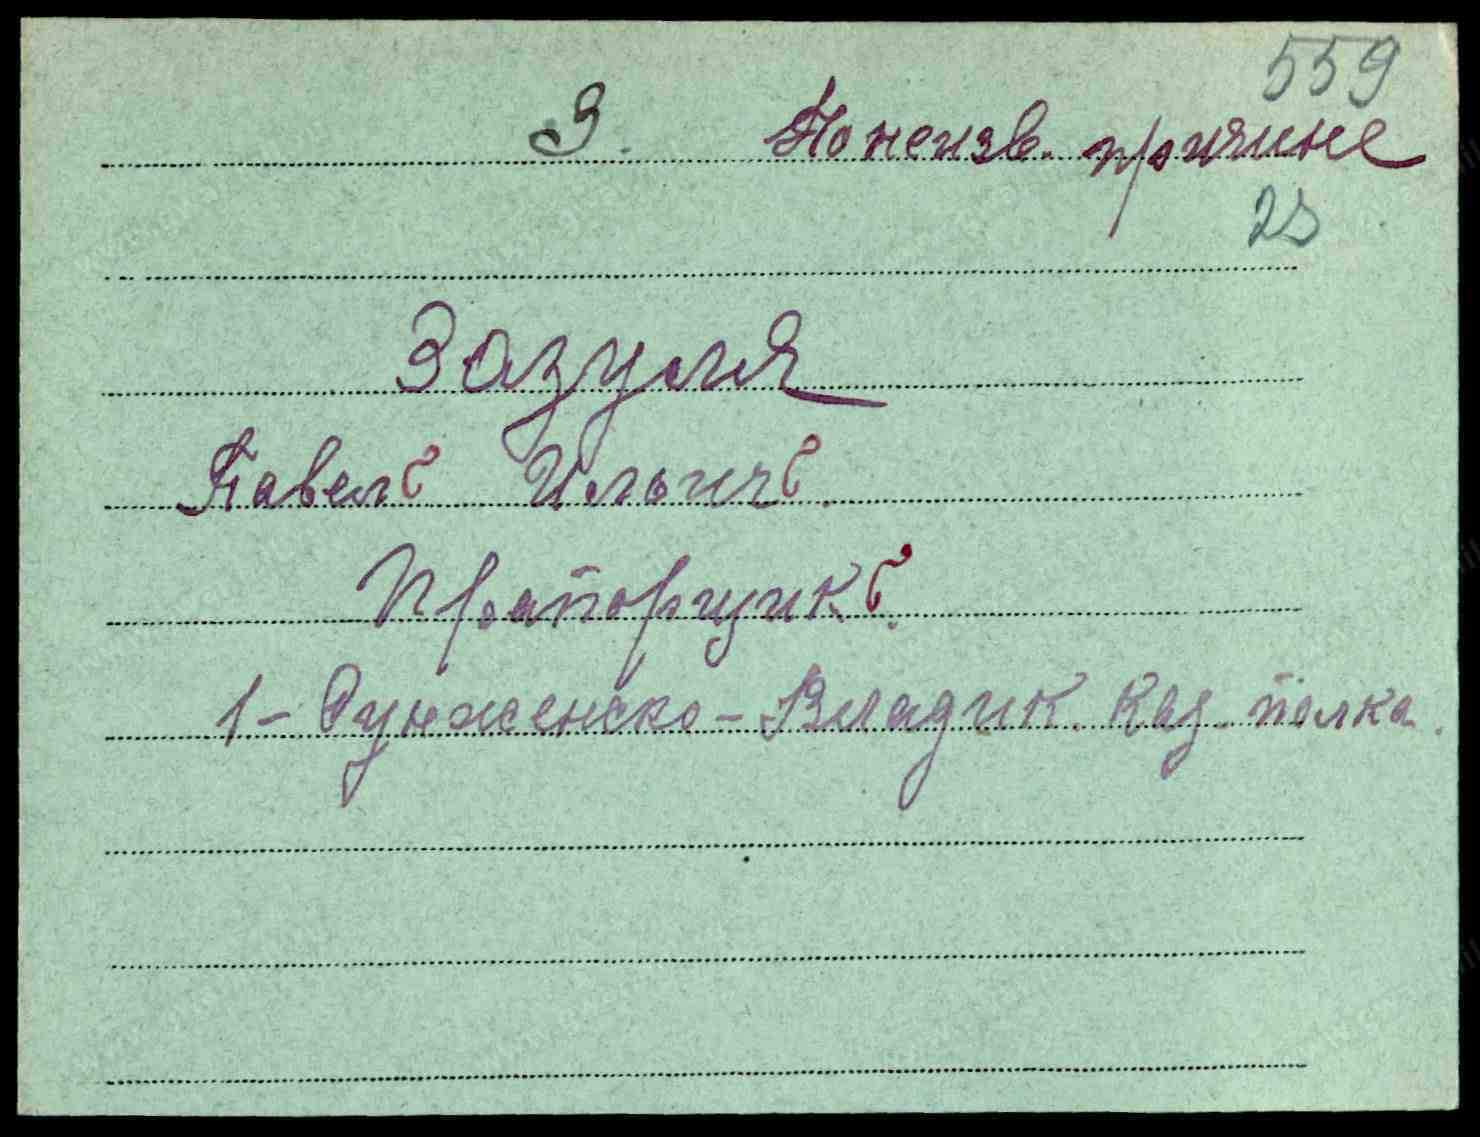 559
З. По неизв. причине
23
Зозуля
Павелъ Ильичъ.
Прапорщикъ.
1-Сунженско-Владик. Каз. полка.